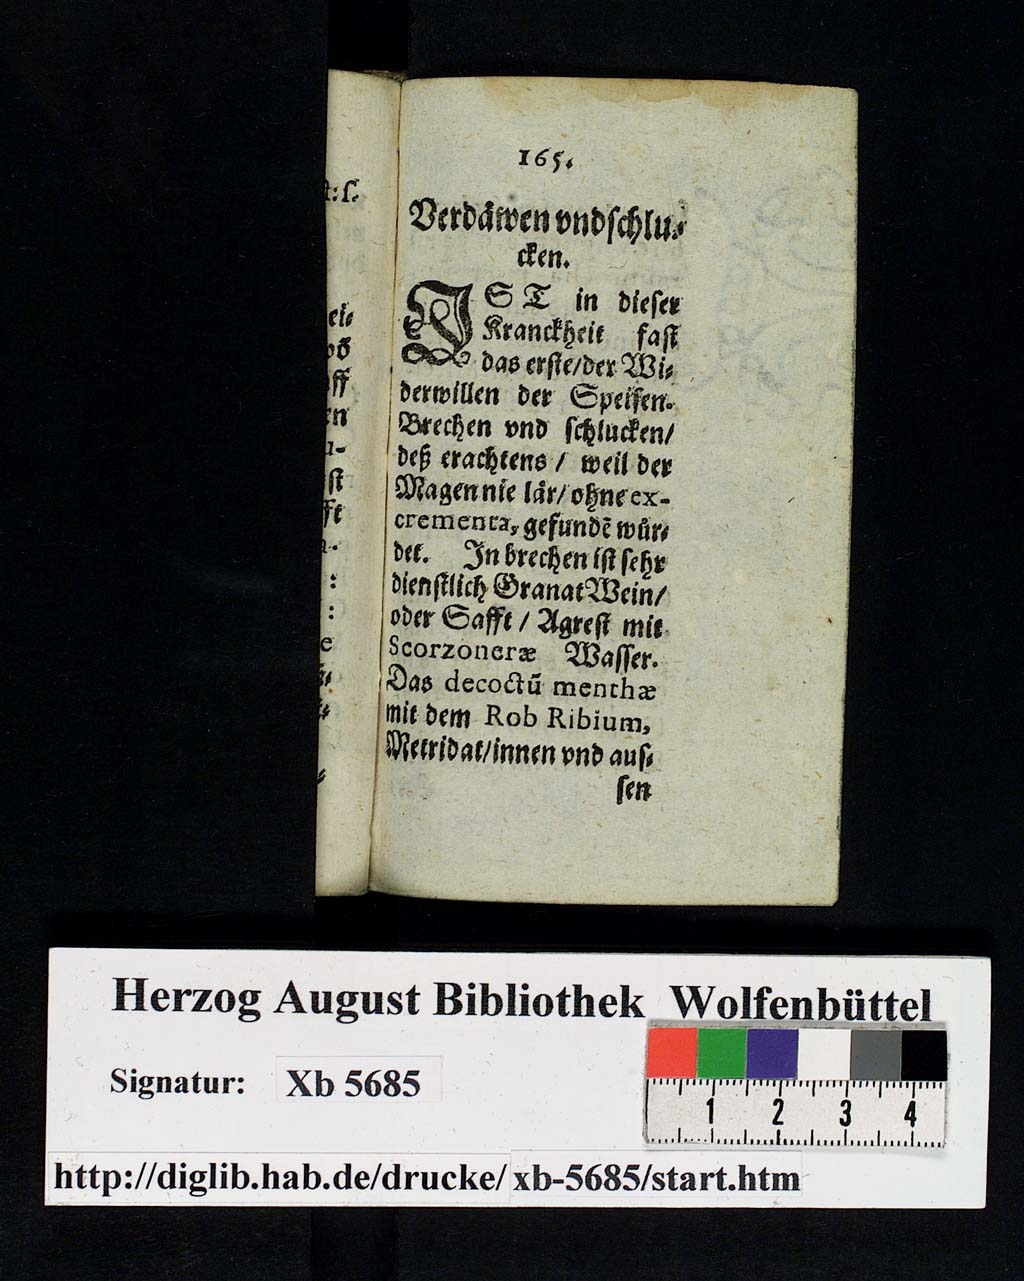 165.
Verdäwen vndschlu⸗
cken.
IST in dieser
Kranckheit fast
das erste/der Wi⸗
derwillen der Speisen.
Brechen vnd schlucken/
deß erachtens / weil der
Magen nie lär/ohne ex-
crementa, gefundẽ wür⸗
det. In brechen ist sehr
dienstlich GranatWein/
oder Safft / Agrest mit
Scorzoneræ Wasser.
Das decoctũ menthæ
mit dem Rob Ribium,
Metridat/innen vnd aus⸗
sen
Herzog August Bibliothek Wolfenbüttel
Signatur: Xb 5685
1 2 3 4
http://diglib.hab.de/drucke/xb-5685/start.htm